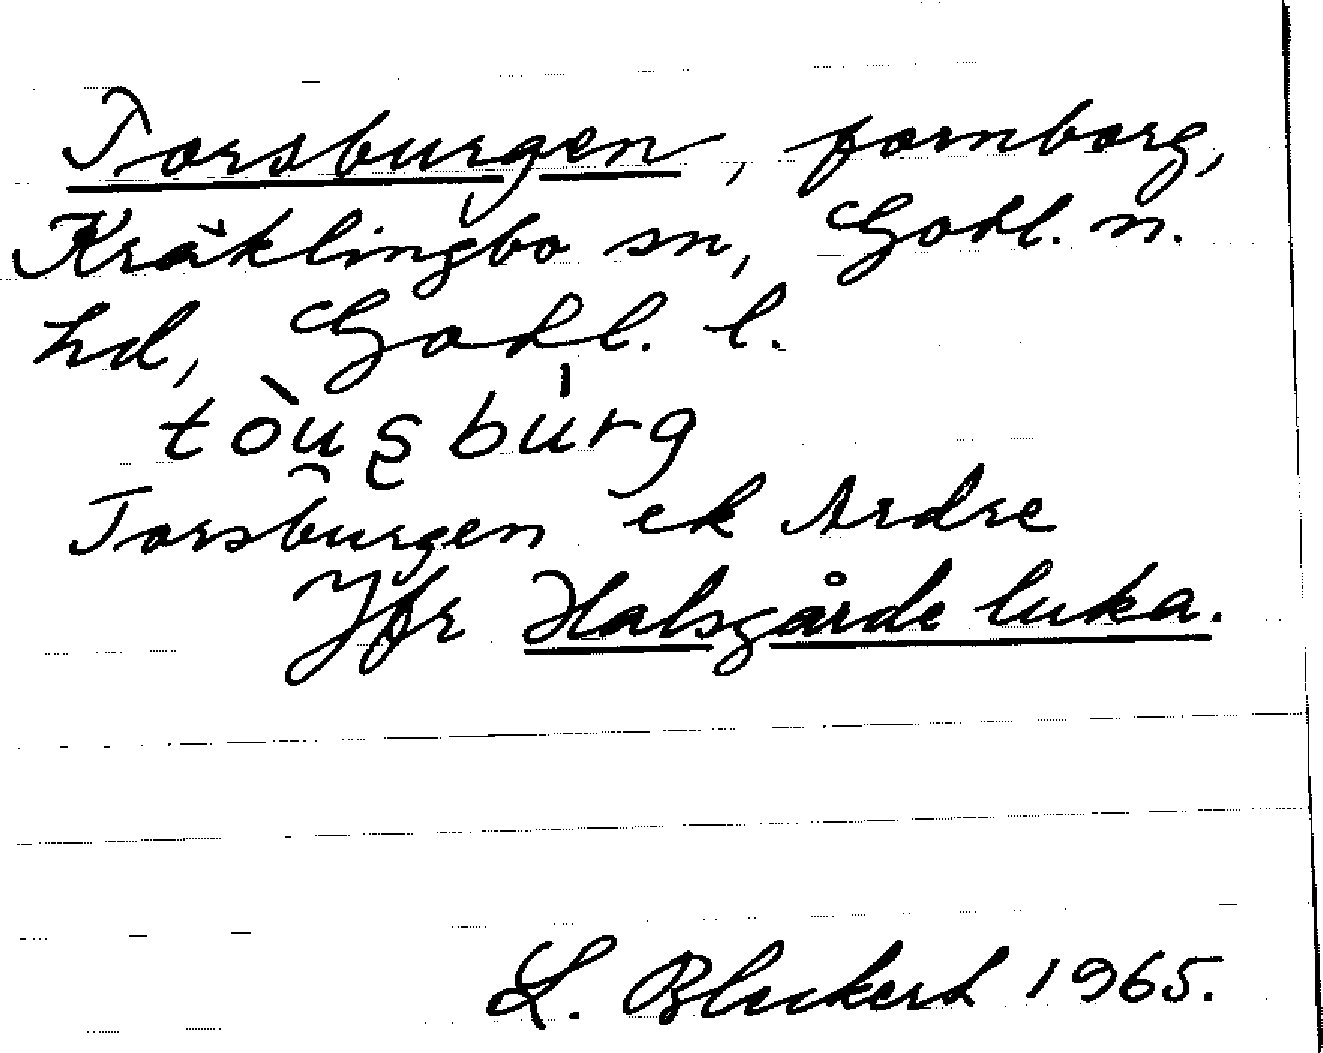 Torsburgen, fornborg,
Kräklingbo sn, Gotl. n.
hd, Gotl. l.
tòu̯ʂbu̍rg
Torsburgen ek Ardre
Jfr Halsgårde luka.
L. Bleckert 1965.